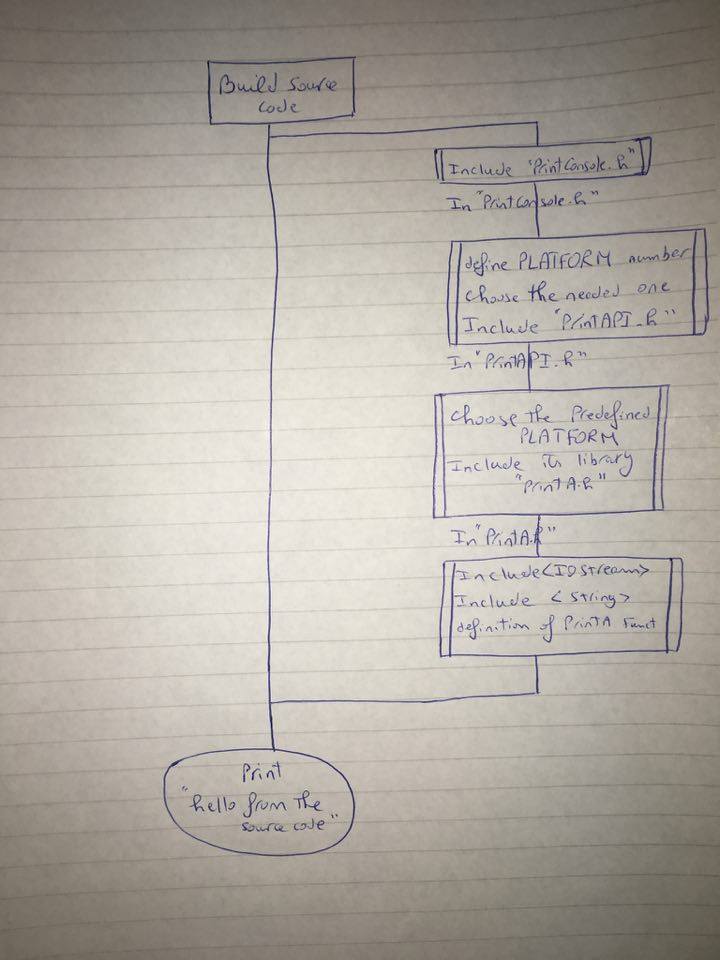 Build source
code
Include "PrintConsole.h"
In "PrintConsole.h"
define PLATFORM number
choose the needed one
Include "PrintAPI.h"
In "PrintAPI.h"
choose the Predefined
PLATFORM
Include its library
"PrintA.h"
In "PrintA.h"
Include <IOStream>
Include <string>
definition of PrintA Funct
Print
"hello from the
source code"